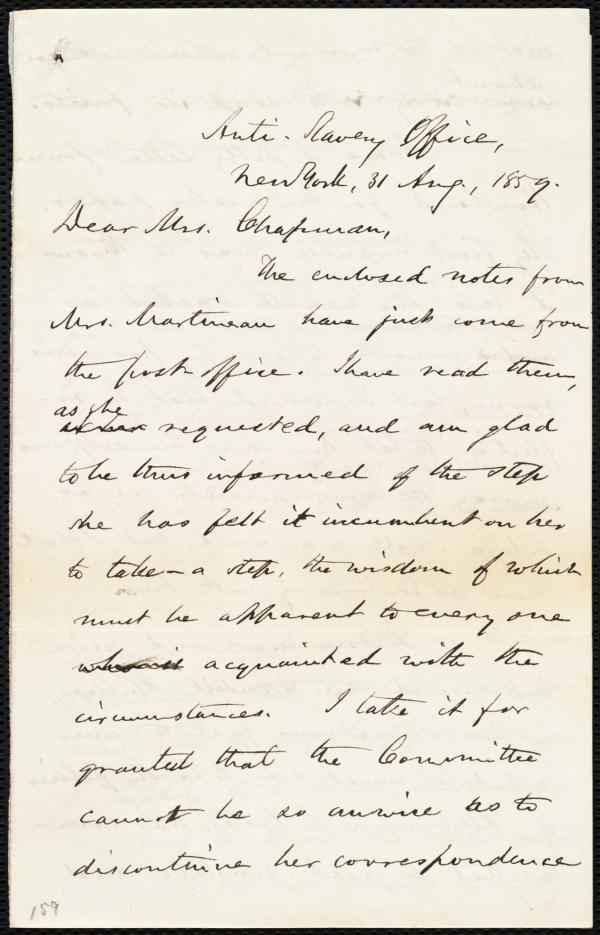 Anti-Slavery Office,
New York, 31 Aug., 1859.
Dear Mrs. Chapman,
The enclosed notes from
Mrs. Martineau have just come from
the post-office. I have read them,
as she
requested, and am glad
to be thus informed of the step
she has felt it incumbent on her
to take – a step, the wisdom of which
must be apparent to every one
who is acquainted with the
circumstances. I take it for
granted that the Committee
cannot be so unwise as to
discontinue her correspondence
159